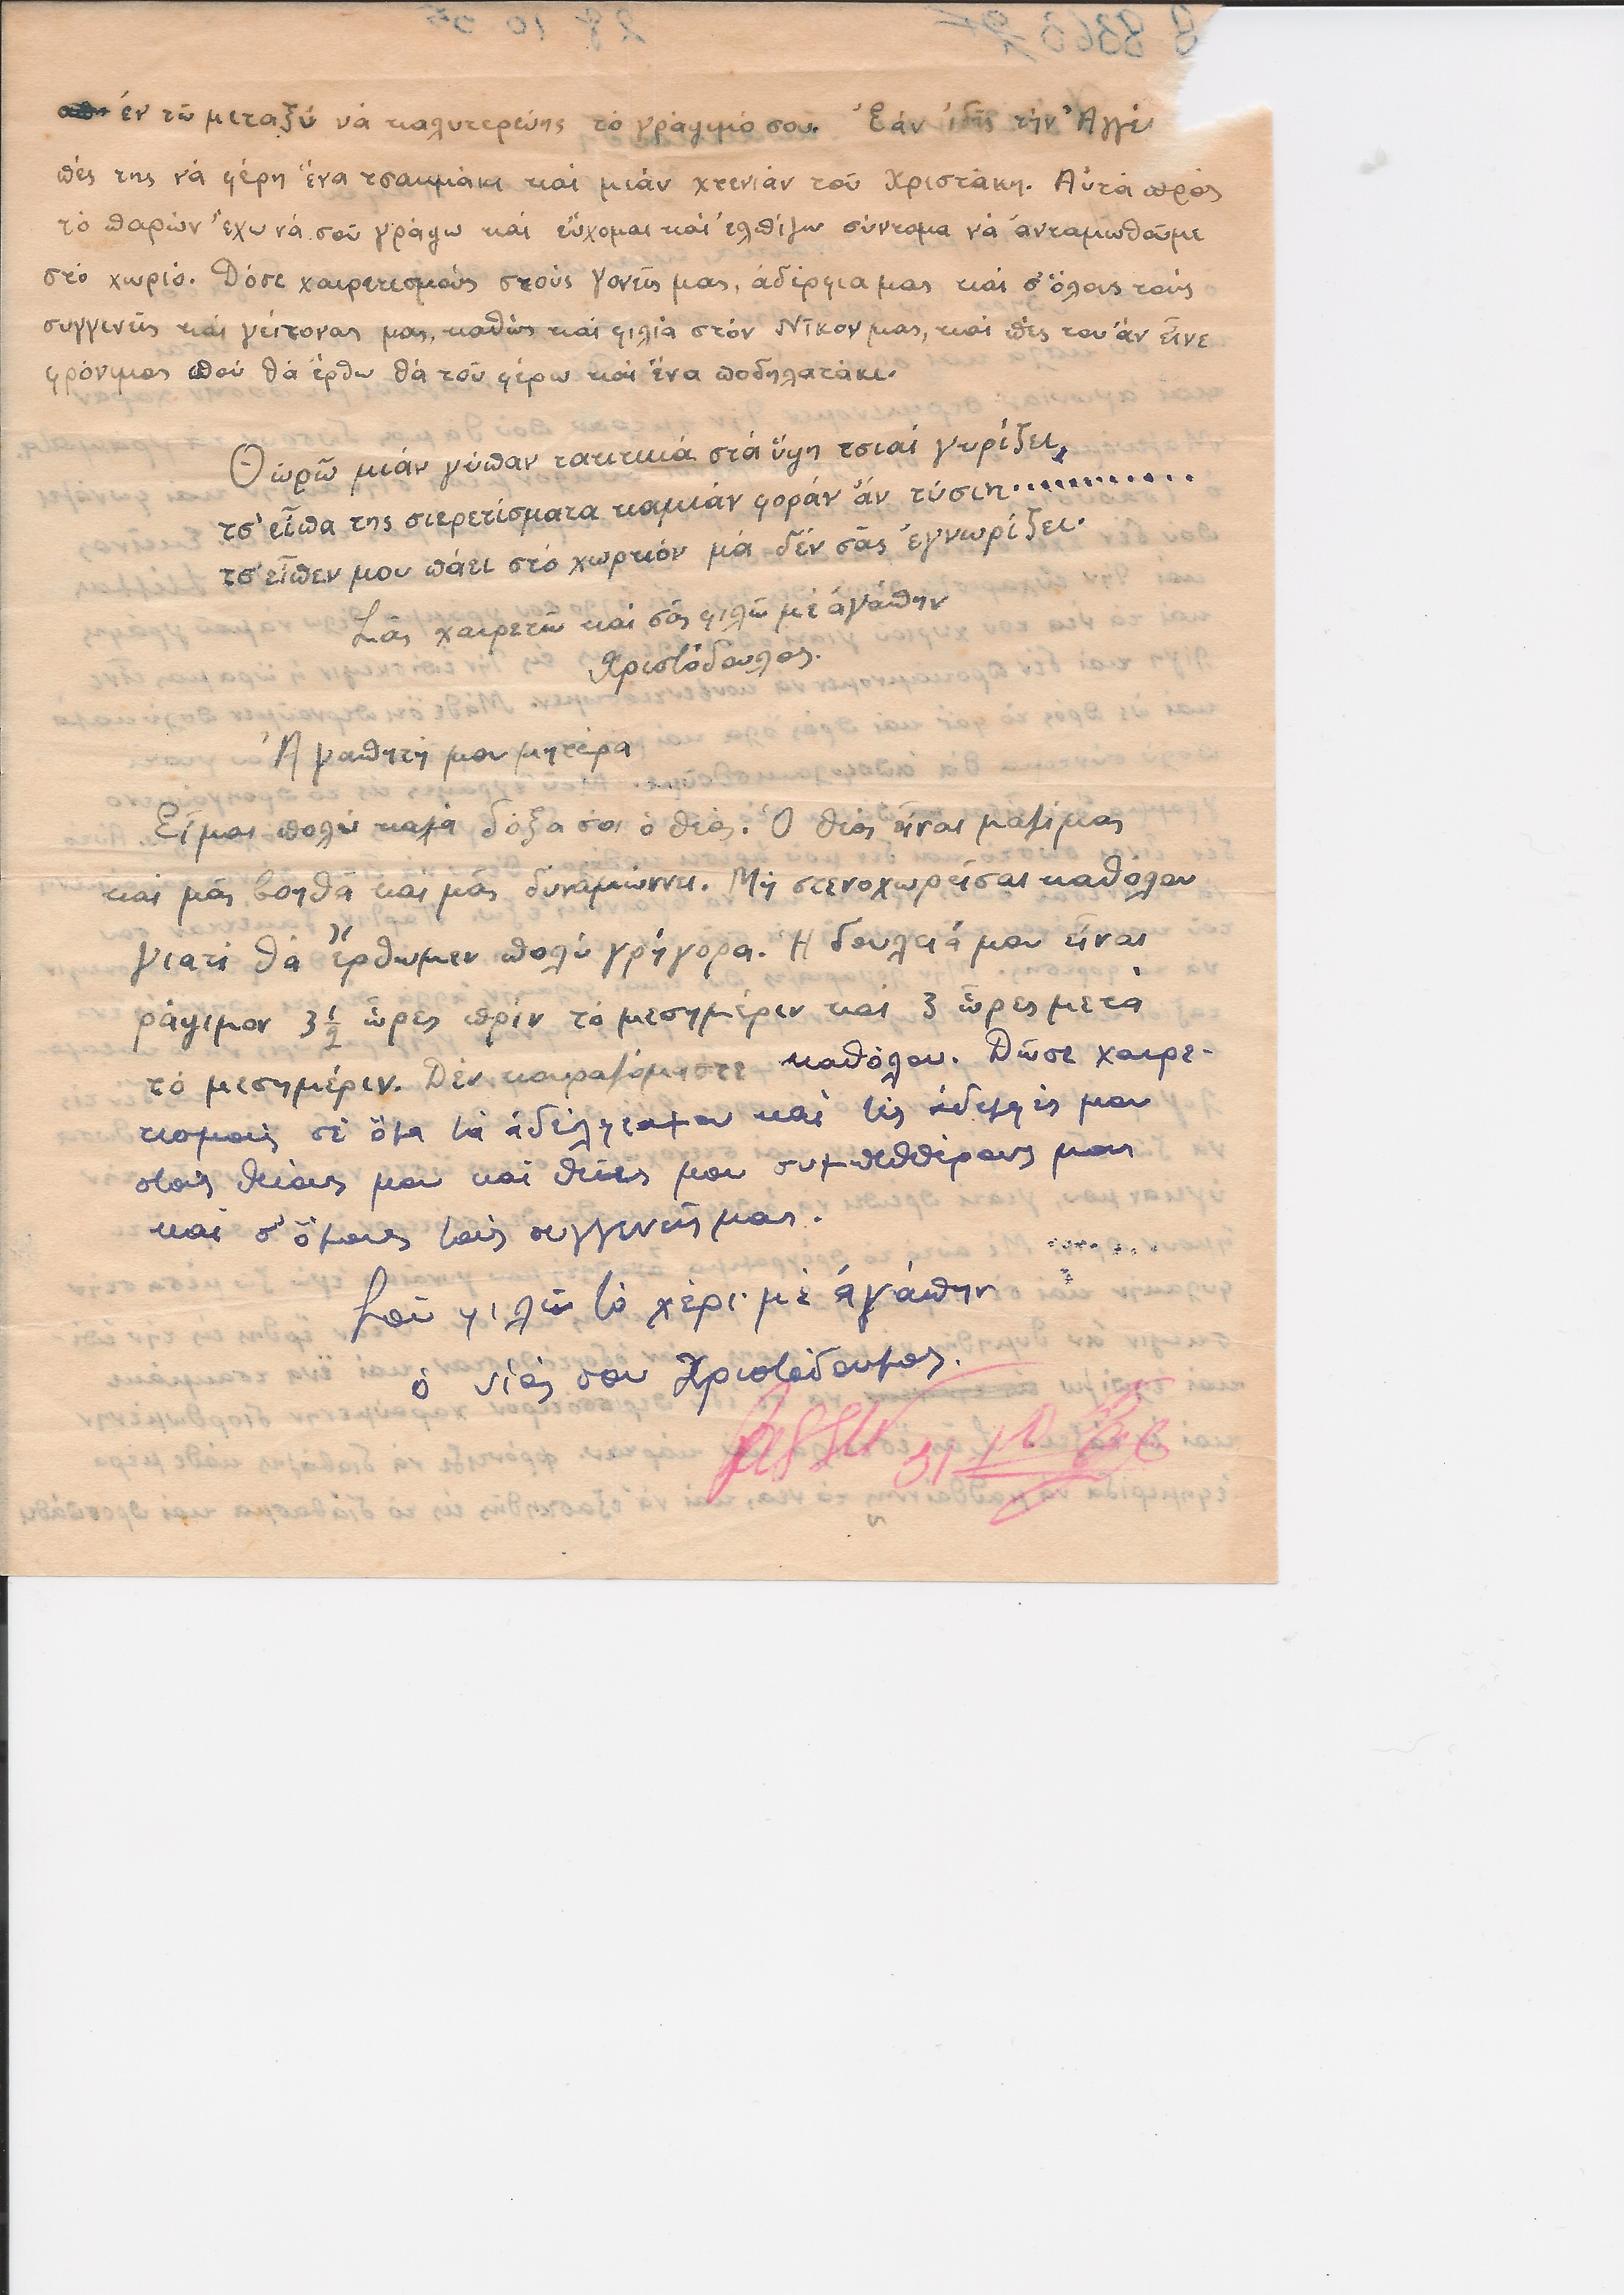 ἐν τῶ μεταξύ νά καλυτερεύης τό γράψιμό σου. Ἐάν ἰδῆς τήν Ἀγγε
πές της νά φέρη ἕνα τσακμάκι καί μιάν χτενιάν τοῦ Χριστάκη. Αὐτά πρός
τό παρών ἔχω νά σοῦ γράψω καί εὔχομαι καί ἐλπίζω σύντομα νά ἀνταμωθοῦμε
στό χωριό. Δόσε χαιρετισμούς στούς γονεῖς μας, ἀδέρφια μας καί σ' ὅλους τούς
συγγενεῖς καί γείτονας μας, καθώς καί φιλιά στόν Νῖκον μας, καί πές του ἄν εἶνε
φρόνιμος πού θά ἔρθω θά τοῦ φέρω καί ἕνα ποδηλατάκι.
Θωρῶ μιάν γύπαν τακτικά στά ὕψη τσιαί γυρίζει,
τσ' εἶπα της σιερετίσματα καμιάν φοράν ἄν τύσιη............
τσ' εἶπεν μου πάει στό χωρκόν μά δέν σᾶς ἐγνωρίζει.
Σᾶς χαιρετῶ καί σᾶς φιλῶ μέ ἀγάπην
Χριστόδουλος.
Ἀγαπητή μου μητέρα
Εἶμαι πολύ καλά δόξα σοι ὁ θεός. Ὁ θεός εἶναι μαζί μας
καί μᾶς βοηθᾶ καί μᾶς δυναμώννει. Μή στενοχωρεῖσαι καθόλου
γιατί θά ἔρθωμεν πολύ γρήγορα. Ἡ δουλειά μου εἶναι
ράψιμον 3 1/2 ὧρες πρίν τό μεσημέριν καί 3 ὧρες μετά
τό μεσημέριν. Δέν κουραζόμαστε καθόλου. Δῶσε χαιρε-
τισμούς σέ ὅλα τά ἀδέλφια μου καί τίς ἀδελφές μου
στούς θείους μου καί θεῖες μου συμπεθθέρους μας
καί σ' ὅλους τούς συγγενεῖς μας.
Σοῦ φιλῶ τό χέρι μέ ἀγάπην
ὁ υἱός σου Χριστόδουλος.